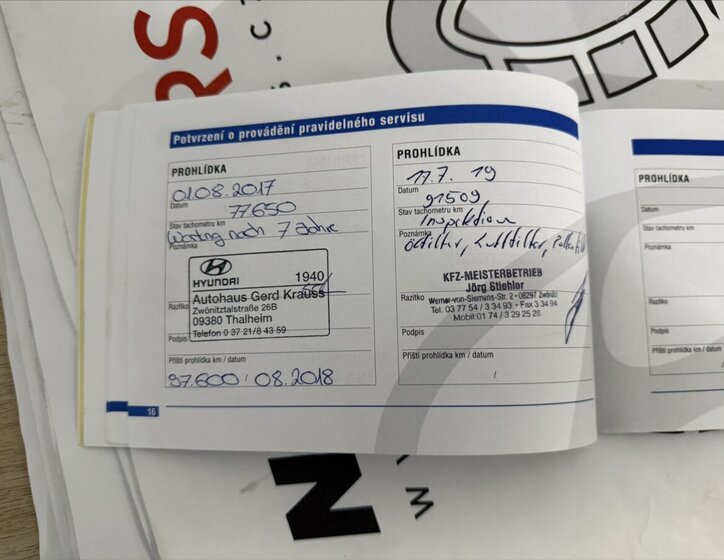 RS
S.CZ
Potvrzení o provádění pravidelného servisu
PROHLÍDKA
01.08.2017
Datum
77650
Stav tachometru km
Wartung nach 7 Jahre
Poznámka
HYUNDAI
1940
Autohaus Gerd Krauss
Zwönitztalstraße 26B
09380 Thalheim
Telefon 0 37 21/8 43 59
Razítko
Podpis
Příští prohlídka km / datum
97.600/08.2018
16
PROHLÍDKA
17.7. 19
Datum
91509
Stav tachometru km
Inspektion
Poznámka
Ölfilter, Luftfilter,
KFZ-MEISTERBETRIEB
Jörg Stiehler
Razítko
Werner-von-Siemens-Str. 2 · 08297 Zwönitz
Tel. 03 77 54 / 3 34 93 · Fax 3 34 94
Mobil: 01 74 / 3 29 25 28
Podpis
Příští prohlídka km / datum
/
PROHLÍDKA
Datum
Stav tachometru km
Poznámka
Razítko
Podpis
Příští prohlídka km / datum
N
W